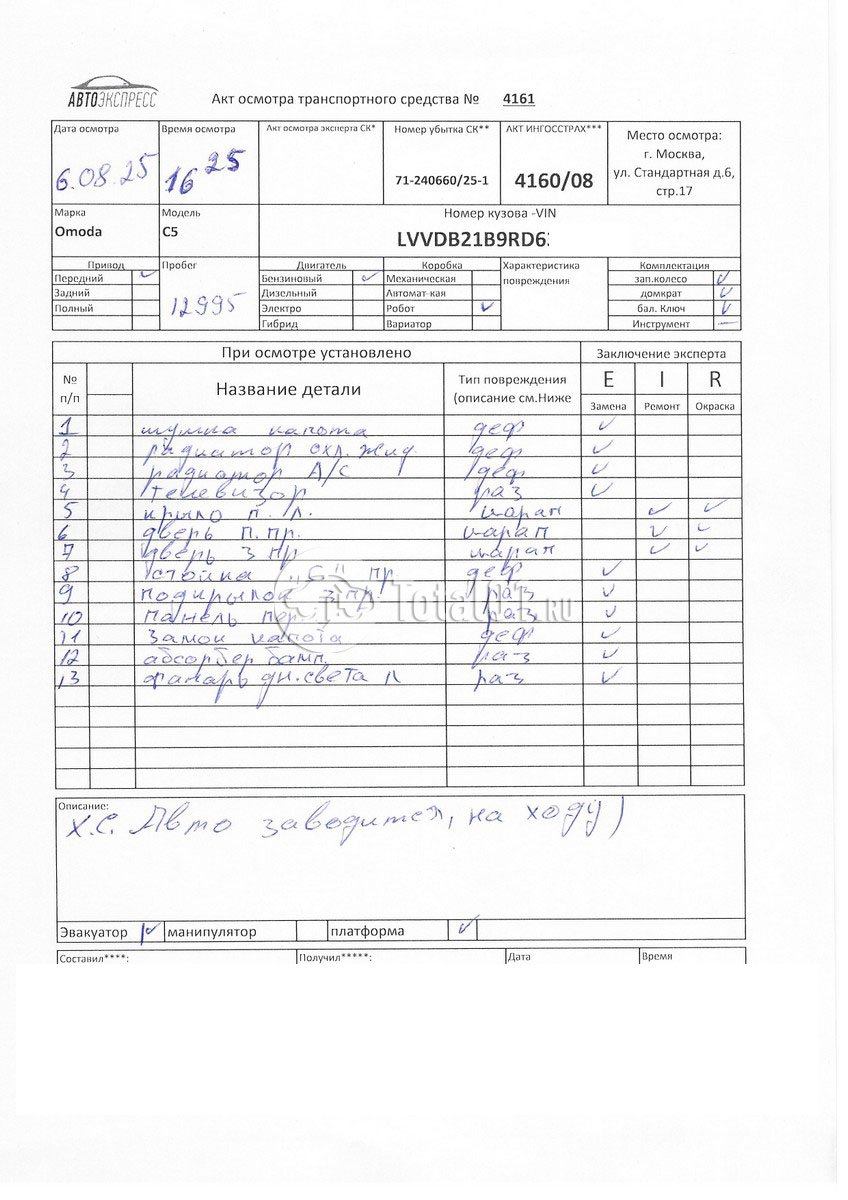 АВТОЭКСПРЕСС
Акт осмотра транспортного средства № 4161
Дата осмотра
6.08.25
Время осмотра
16 25
Акт осмотра эксперта СК*
Номер убытка СК**
71-240660/25-1
АКТ ИНГОССТРАХ***
4160/08
Место осмотра:
г. Москва,
ул. Стандартная д.6,
стр.17
Марка
Omoda
Модель
C5
Номер кузова -VIN
LVVDB21B9RD6
Привод
Передний ✓
Задний
Полный
Пробег
12995
Двигатель
Бензиновый ✓
Дизельный
Электро
Гибрид
Коробка
Механическая
Автомат-кая
Робот ✓
Вариатор
Характеристика
повреждения
Комплектация
зап.колесо ✓
домкрат ✓
бал. Ключ ✓
Инструмент —
При осмотре установлено
Заключение эксперта
№
п/п
Название детали
Тип повреждения
(описание см.Ниже
E I R
Замена Ремонт Окраска
1 шумка капота деф ✓
2 радиатор охл. жид. деф ✓
3 радиатор A/C деф ✓
4 телевизор раз ✓
5 крыло п. л. царап ✓ ✓
6 дверь п. пр. царап ✓ ✓
7 дверь з пр царап ✓ ✓
8 стойка "С" пр деф ✓
9 подкрылок з пр. раз ✓
10 панель пер раз ✓
11 замок капота деф ✓
12 абсорбер бамп. раз ✓
13 фонарь дн. света л раз ✓
Total01.RU
Описание:
Х.С. Авто заводится, на ходу)
Эвакуатор ✓ манипулятор платформа ✓
Составил****: Получил*****: Дата Время